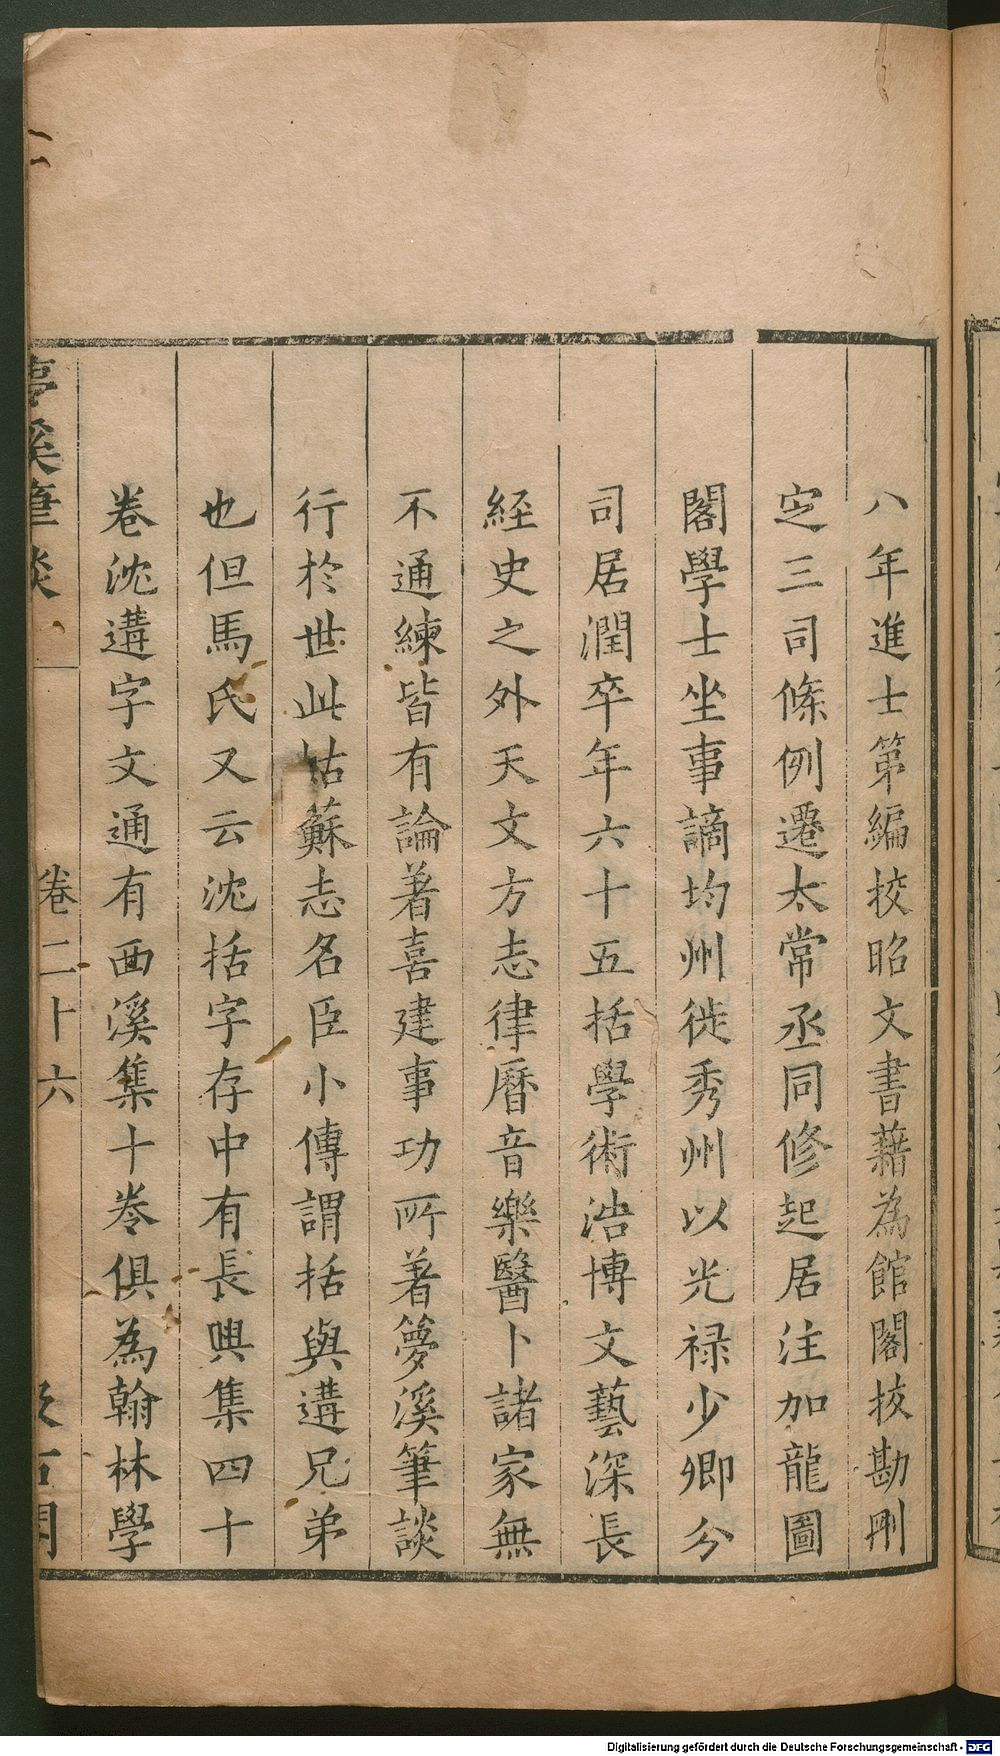 八年進士第編挍昭文書藉為館閣挍勘刪
定三司條例遷太常丞同修起居注加龍圖
閣學士坐事謫均州徙秀州以光禄少卿分
司居潤卒年六十五括學術浩博文藝深長
経史之外天文方志律曆音樂醫卜諸家無
不通練皆有論著喜建事功所著夢溪筆談
行於世此姑蘇志名臣小傳謂括與遘兄弟
也但馬氏又云沈括字存中有長興集四十
卷沈遘字文通有西溪集十卷俱為翰林學
夢溪筆談 卷二十六
Digitalisierung gefördert durch die Deutsche Forschungsgemeinschaft - DFG